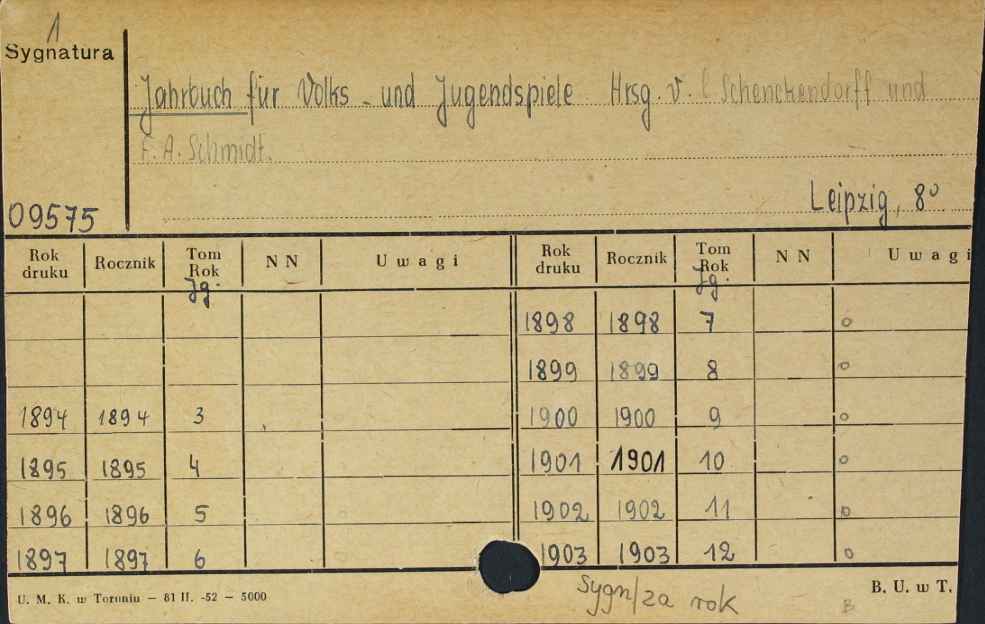 1
Sygnatura
Jahrbuch für Volks - und Jugendspiele Hrsg. v. E Schenckendorff und
F. A. Schmidt.
09575
Leipzig, 8°
Rok druku Rocznik Tom Rok NN Uwagi Rok druku Rocznik Tom Rok NN Uwagi
Jg. Jg.
1898 1898 7 o
1899 1899 8 o
1894 1894 3 1900 1900 9 o
1895 1895 4 1901 1901 10 o
1896 1896 5 o 1902 1902 11 o
1897 1897 6 o 1903 1903 12 o
U. M. K. w Toruniu — 81 II. -52 — 5000
Sygn/za rok
B
B. U. w T.